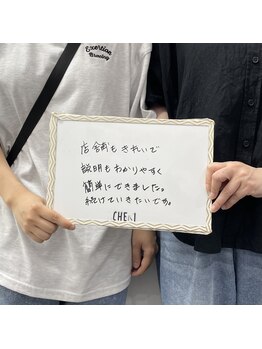 Exertion
Brewing
店舗もきれいで
説明もわかりやすく
簡単にできました。
続けていきたいです。
CHERI